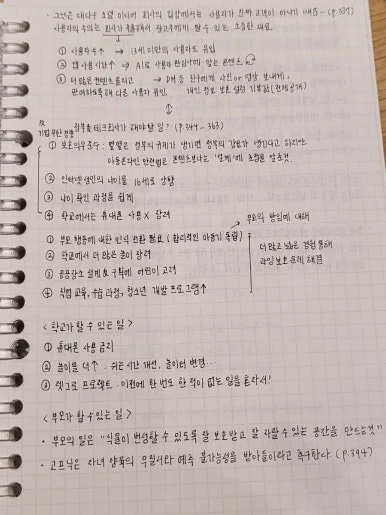 · 그것은 대다수 소셜 미디어 회사의 입장에서는 사용자가 진짜 고객이 아니기 때문 - (p.337)
사용자의 주의는 회사가 추출해서 광고주에게 팔 수 있는 소중한 재료.
① 사용자수 ↑ → 13세 미만의 사용자도 유입
② 앱 사용시간 ↑ → AI로 사용자
③ 더 많은 컨텐츠 올리고 → DM 등 친구에게 사진 or 영상 보내게,
다른 사용자 유인 개인정보 보호 설정 기본값 (전체공개)
정부 & 테크회사가 해야할 일? (p.344 ~ 363)
① 보호의무준수 : 정부의 규제가 생기면 정부의 강요가 생긴다고 하지만
아동온라인 안전법은 콘텐츠보다는 '설계'에 초점을 맞춘것
② 인터넷 성인의 나이를 16세로 상향
③ 나이 확인 과정을 쉽게
④ 학교에서는 휴대폰 사용 X 장려
부모의 방임에 대해
① 부모 행동에 대한 인식 전환 필요 (합리적인 아동기 독립)
② 학교에서 더 많은 놀이 장려
③ 공공장소 설계 & 구획에 어린이 고려
④ 직업 교육, 수습 과정, 청소년 개발 프로그램 ↑
더 많고 넓은 경험 통해
과잉보호 문제 해결
< 학교가 할 수 있는 일 >
① 휴대폰 사용 금지
② 놀이를 더 ↑. 쉬는시간 개선, 놀이터 변경...
③ 렛그로 프로젝트. 이전에 한 번도 한 적이 없는 일을 혼자서!
< 부모가 할 수 있는 일 >
· 부모의 일은 "식물이 번성할 수 있도록 잘 보호받고 잘 자랄 수 있는 공간을 만드는것"
· 고프닉은 자녀 양육의 무질서와 예측 불가능성을 받아들이라고 촉구한다 (p.394)